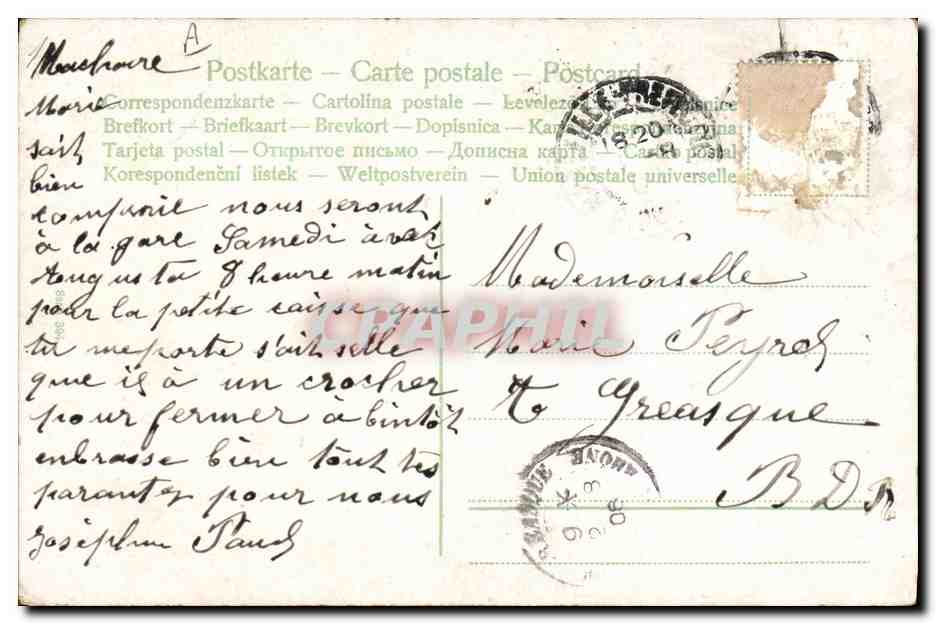 A
Machaire
Postkarte — Carte postale — Postcard
Marie
Correspondenzkarte — Cartolina postale — Levelező
Brefkort — Briefkaart — Brevkort — Dopisnica —
sait
Tarjeta postal — Открытое письмо — Дописна карта — postal
bien
Korespondenční lístek — Weltpostverein — Union postale universelle
compranie nous seront
à la gare Samedi àvec
Augusta 8 heure matin
pour la petite caisse que
tu me porte s'ait selle
que il à un crocher
pour fermer à bintôt
enbrasse bien tout tes
parantes pour nous
Joséphine
Mademoiselle
Marie Peyrol
Greasque
B D R
20
8
9 *
2 8
08
CPAPHIL